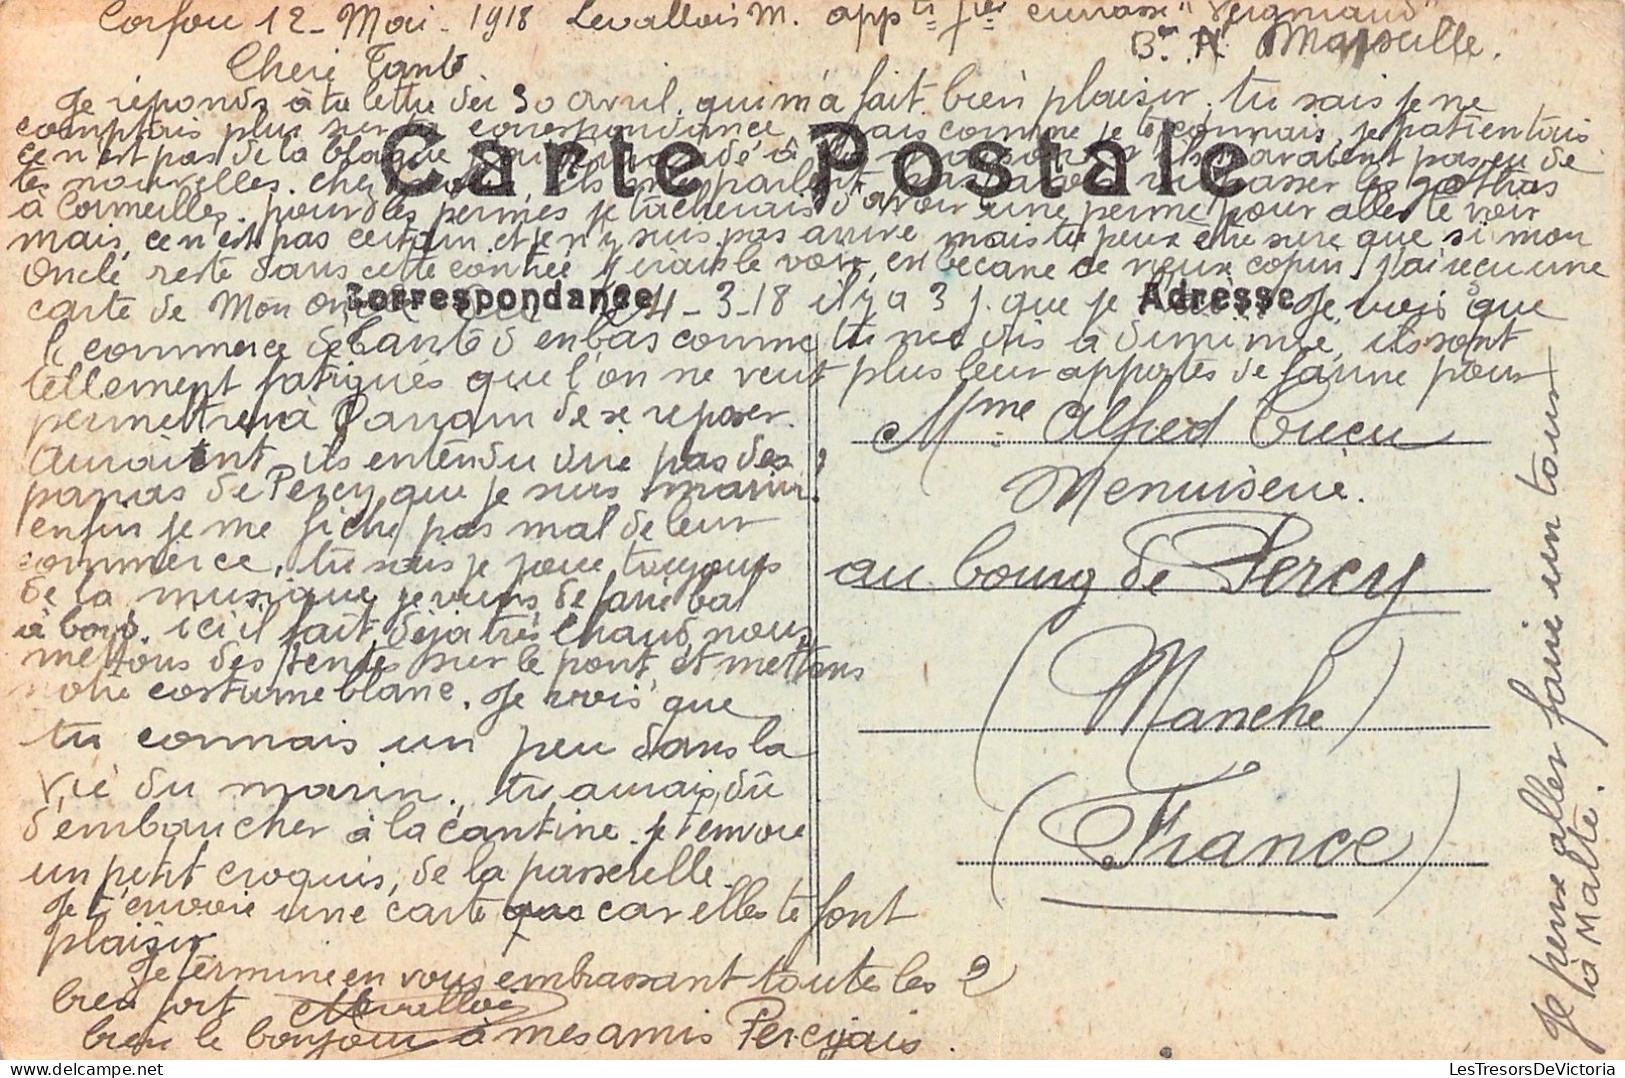 Corfou 12 - Mai - 1918 Levallois M. app^ti 1^er cuirassé "Vergniaud"
B^au N^al Marseille.
Chere Tante
Je réponds à ta lettre du 30 avril, qui m'a fait bien plaisir, tu sais je ne
comptais plus sur ta correspondance, mais comme je te connais, je patientais
ce n'est pas de la blague j'ai demandé à la maison s'ils n'avaient pas eu de
tes nouvelles. chez nous, ils me parlent pas d'aller ramasser les
à Cormeilles. pour les permes je tâcherais d'avoir une perme pour aller te voir
mais, ce n'est pas certain, et je n'y suis pas arrivé mais tu peux être sure que si mon
Oncle reste dans cette contrée j'irais le voir, en bécane ce vieux copin, j'ai reçu une
carte de Mon Oncle 24-3-18 il y a 3 j. que je Je vois que
le commerce de Tante d'en bas comme tu me dis à diminué, ils sont
tellement fatigués que l'on ne veut plus leur apportés de farine pour
permettre à Panam de se reposer.
Auraient ils entendu dire pas des
papas de Percy, que je suis marin?
enfin je me fiche pas mal de leur
commerce, tu sais je joue toujours
de la musique, je viens de faire bal
à bord. ici il fait déjà très chaud, nous
mettons des tentes sur le pont et mettons
notre costume blanc. Je vois que
tu connais un peu dans la
vie du marin, tu aurais dû
d'embaucher à la cantine. je t'envoie
un petit croquis, de la passerelle.
Je t'envoie une carte car elles te font
plaisir
Je termine en vous embrassant toutes les 2
bien fort Levallois
bien le bonjour à mes amis Percyjais.
Carte Postale
Correspondance
Adresse
Mme Alfred Cucu
Menuiserie.
au bourg de Percy
(Manche)
(France)
Je peux aller faire un tour
à Malte.
LesTresorsDeVictoria